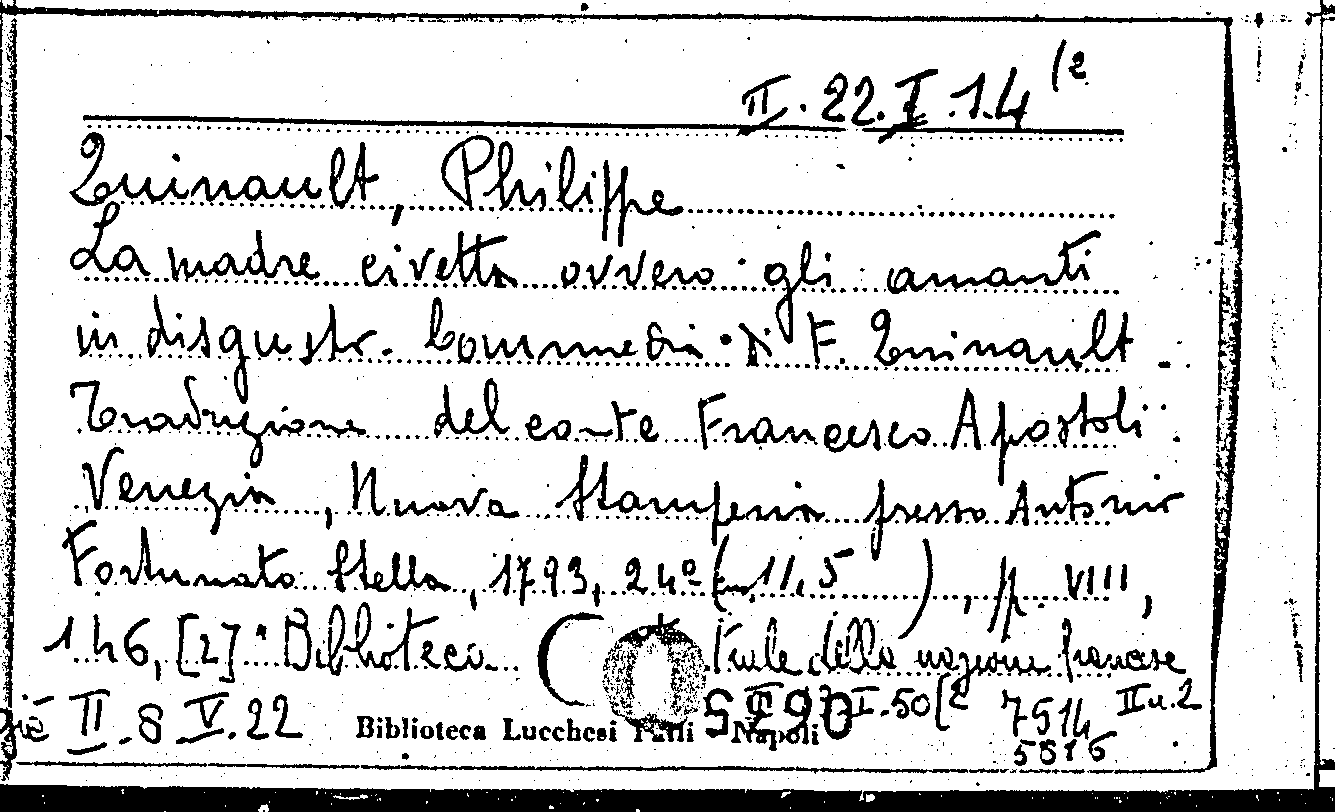 II.22.I.14 (2
Quinault, Philippe
La madre civetta ovvero gli amanti
in disgusto. Commedia di F. Quinault.
Traduzione del conte Francesco Apostoli.
Venezia, Nuova Stamperia presso Antonio
Fortunato Stella, 1793, 24º (cm. 11,5 ), pp. VIII,
146, [2] Biblioteca teatrale della nazione francese
già II.8.V.22 50(2 7514 II n. 2
Biblioteca Lucchesi Palli Napoli
5816